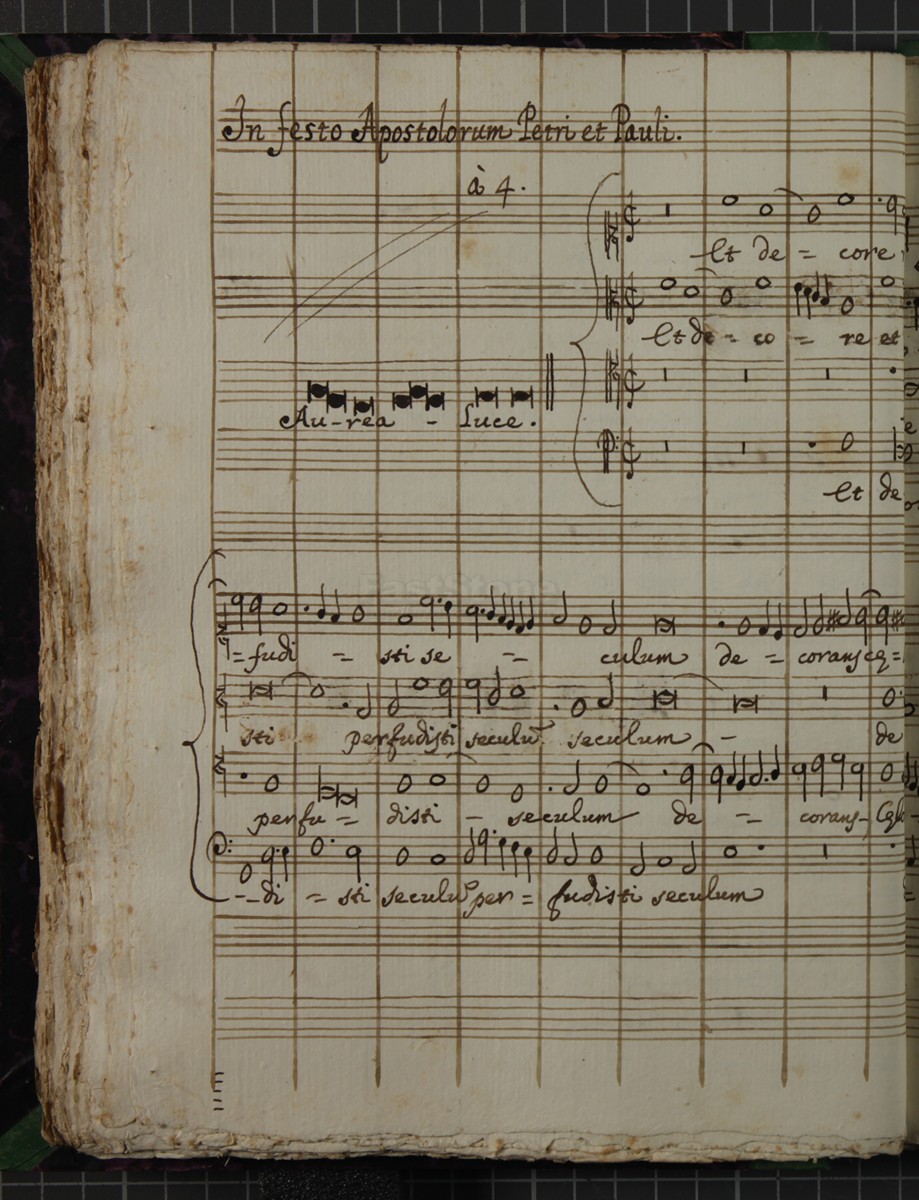 In festo Apostolorum Petri et Pauli.
à 4.
Et de = core
Et de = co = re et
Au-rea - luce.
Et de
= fudi = sti se -- culum de = corans
sti perfudisti seculu seculum - de
perfu = disti - seculum de -- corans-
--di = sti seculu per = fudisti seculum